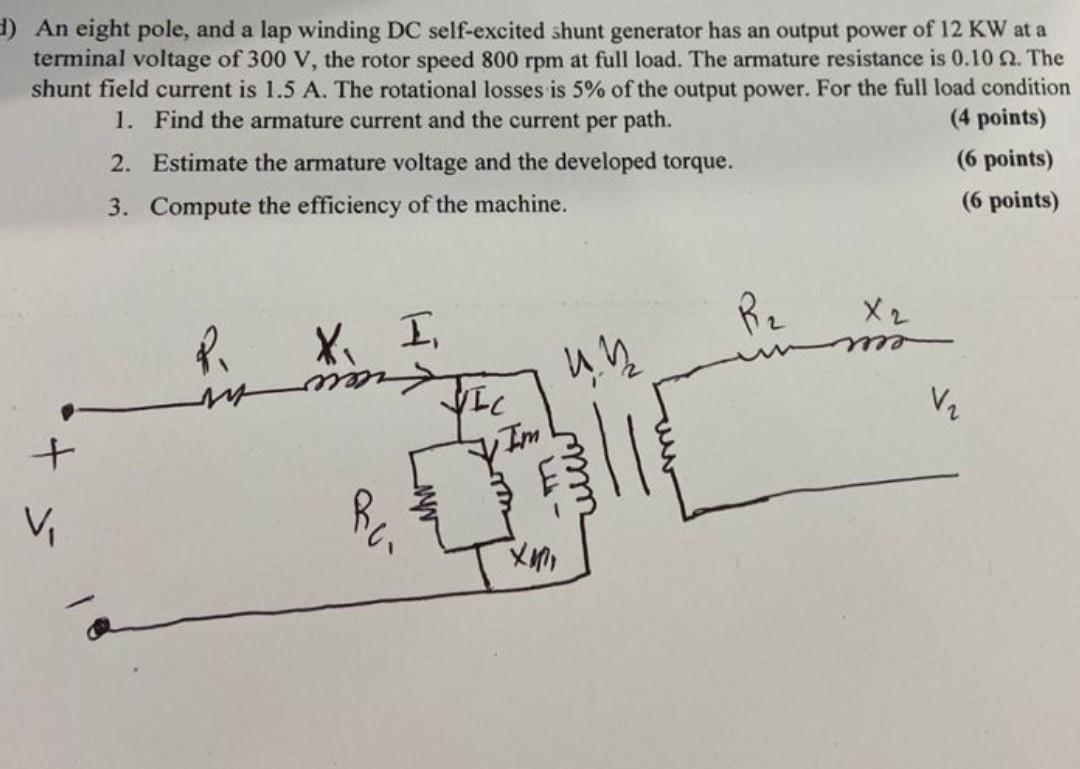 d) An eight pole, and a lap winding DC self-excited shunt generator has an output power of 12 KW at a
terminal voltage of 300 V, the rotor speed 800 rpm at full load. The armature resistance is 0.10 Ω. The
shunt field current is 1.5 A. The rotational losses is 5% of the output power. For the full load condition
1. Find the armature current and the current per path. (4 points)
2. Estimate the armature voltage and the developed torque. (6 points)
3. Compute the efficiency of the machine. (6 points)
R₁ X₁ I₁ R₂ X₂
Ic
Im
+ V₂
V₁ Rc₁ E₁
Xm₁
-